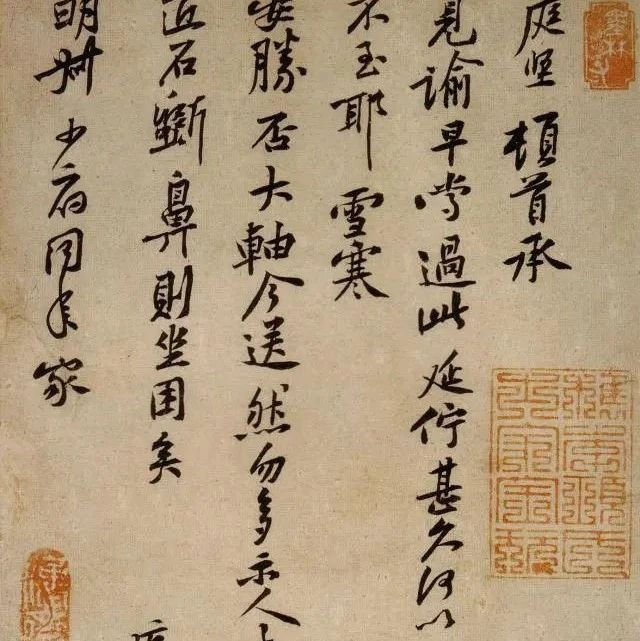 庭坚頓首承
見諭早嘗過此延佇甚久何以
不至耶雪寒
安勝否大軸今送然勿多示人
匠石斵鼻則坐困矣
明叔少府同年家